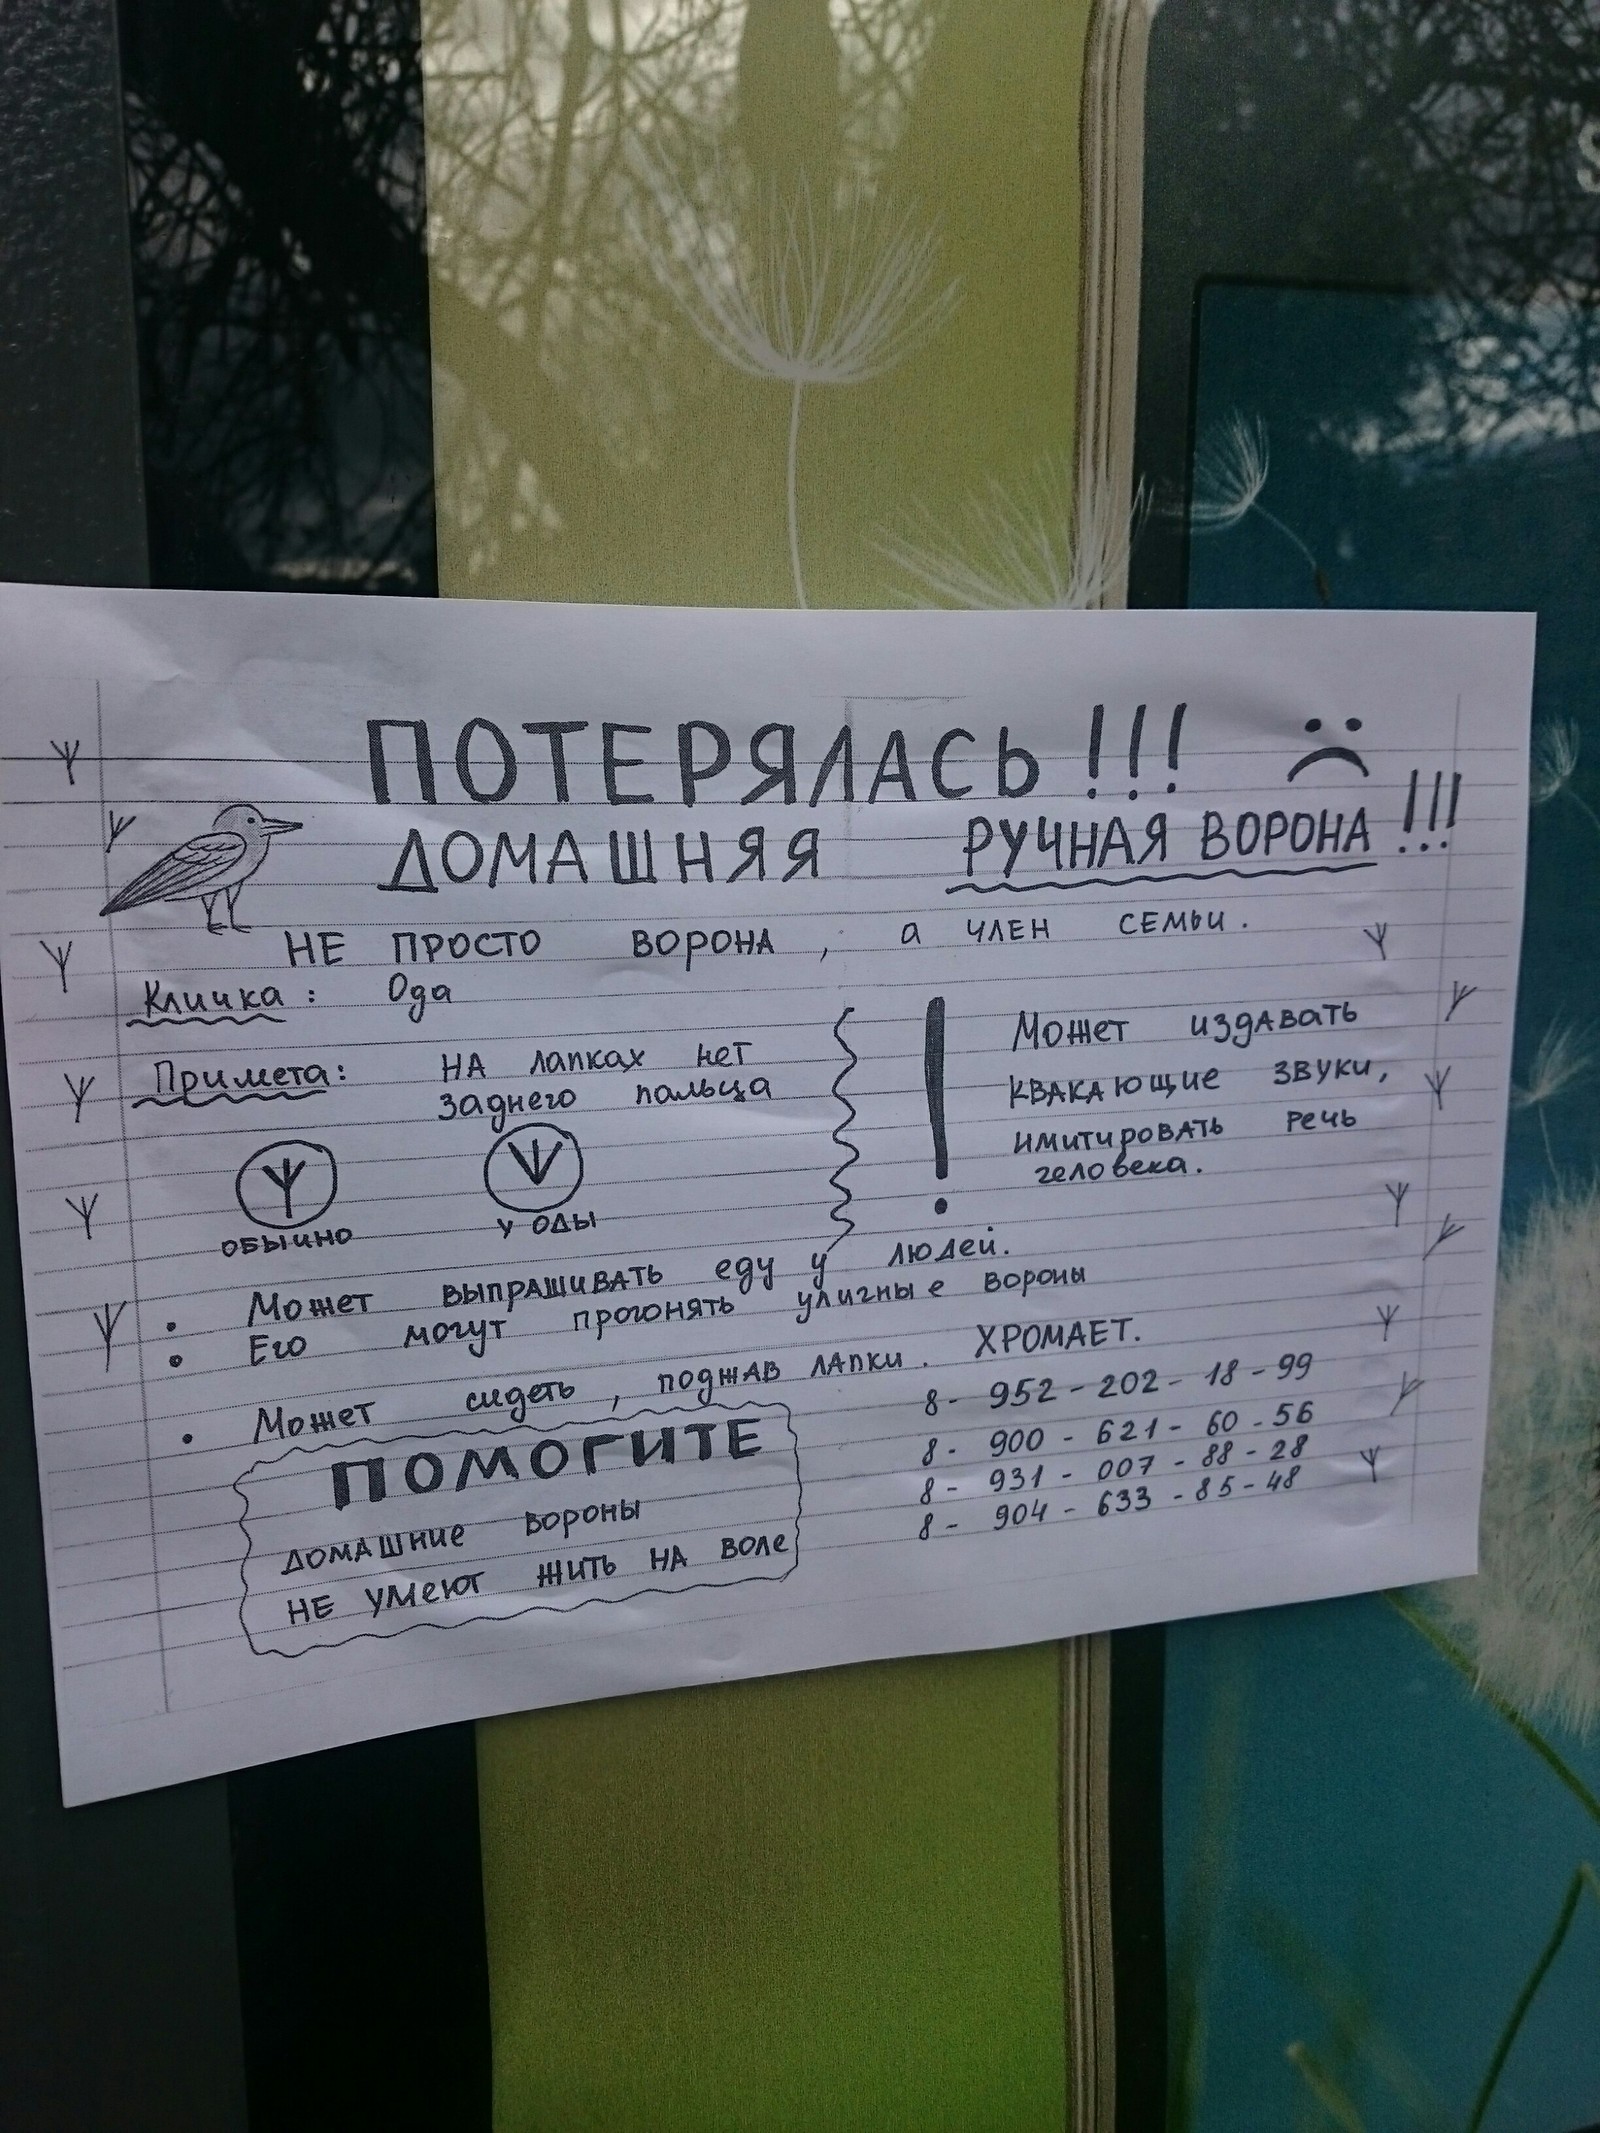 ПОТЕРЯЛАСЬ!!! :(
ДОМАШНЯЯ РУЧНАЯ ВОРОНА!!!
НЕ ПРОСТО ВОРОНА, а член семьи.
Кличка: Ода
Примета: на лапках нет
заднего пальца
обычно
у Оды
Может издавать
квакающие звуки,
имитировать речь
человека.
• Может выпрашивать еду у людей.
• Его могут прогонять уличные вороны
• Может сидеть, поджав лапки. ХРОМАЕТ.
ПОМОГИТЕ
домашние вороны
не умеют жить на воле
8 - 952 - 202 - 18 - 99
8 - 900 - 621 - 60 - 56
8 - 931 - 007 - 88 - 28
8 - 904 - 633 - 85 - 48